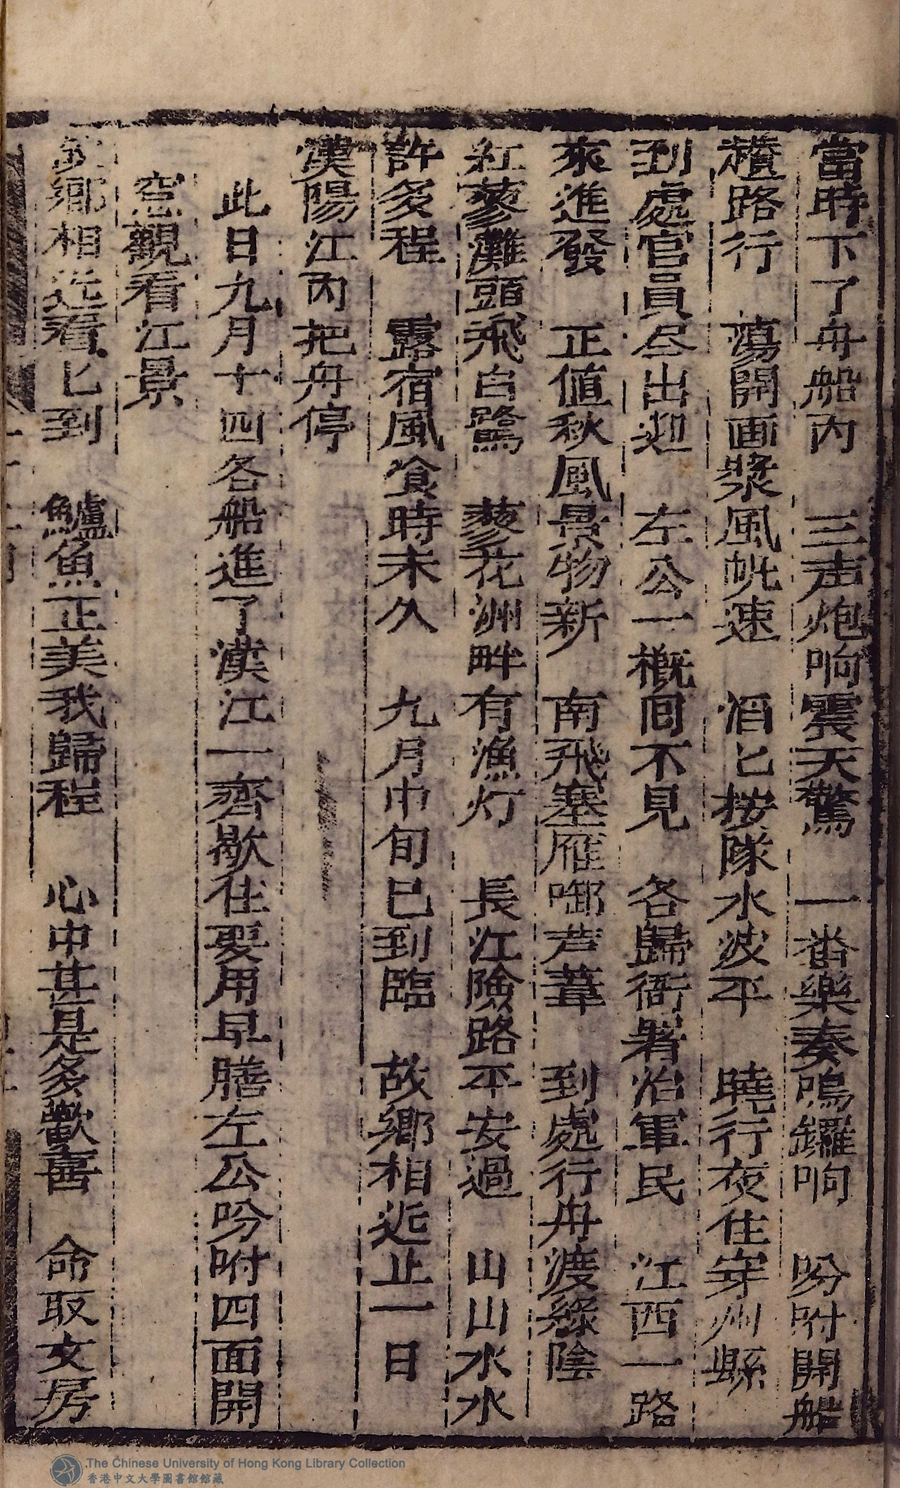 當時下了舟船內　三声炮响震天驚　一畨樂奏鳴鑼响　吩咐開船
趲路行　蕩開画槳風帆速　滔匕按隊水波平　曉行夜住穿州縣
到處官員尽出迎　左公一概囘不見　各歸衙署治軍民　江西一路
來進發　正值秋風景物新　南飛塞雁啣芦葦　到處行舟渡綠陰
紅蓼灘頭飛白鷺　蓼花洲畔有漁灯　長江險路平安過　山山水水
許多程　露宿風飡時未久　九月中旬已到臨　故鄉相近止一日
漢陽江內把舟停
此日九月十四各船進了漢江一齊歇住要用早膳左公吩咐四面開
窓觀看江景
故鄉相近看匕到　鱸魚正美我歸程　心中甚是多歡喜　命取文房
.The Chinese University of Hong Kong Library Collection
香港中文大學圖書館館藏